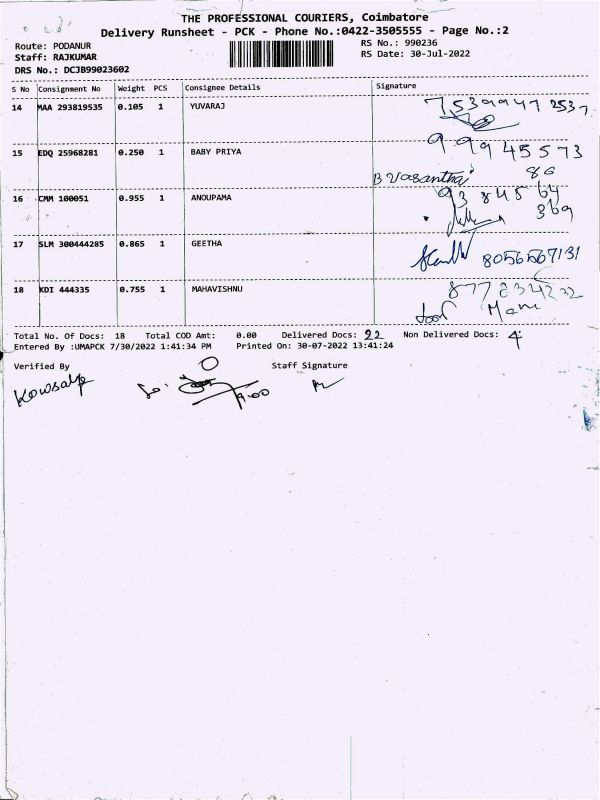 THE PROFESSIONAL COURIERS, Coimbatore
Delivery Runsheet - PCK - Phone No.:0422-3505555 - Page No.:2
Route: PODANUR
RS No.: 990236
Staff: RAJKUMAR
RS Date: 30-Jul-2022
DRS No.: DCJB99023602
S No Consignment No Weight PCS Consignee Details Signature
14 MAA 293819535 0.105 1 YUVARAJ 75399472537
15 EDQ 25968281 0.250 1 BABY PRIYA 99945573
86
B Vasantha
16 CMM 100051 0.955 1 ANOUPAMA 93 845 64
369
17 SLM 300444285 0.865 1 GEETHA 8056567131
18 KDI 444335 0.755 1 MAHAVISHNU 8778234232
Mani
Total No. Of Docs: 18 Total COD Amt: 0.00 Delivered Docs: 22 Non Delivered Docs: 4
Entered By :UMAPCK 7/30/2022 1:41:34 PM Printed On: 30-07-2022 13:41:24
Verified By Staff Signature
Kowsalya